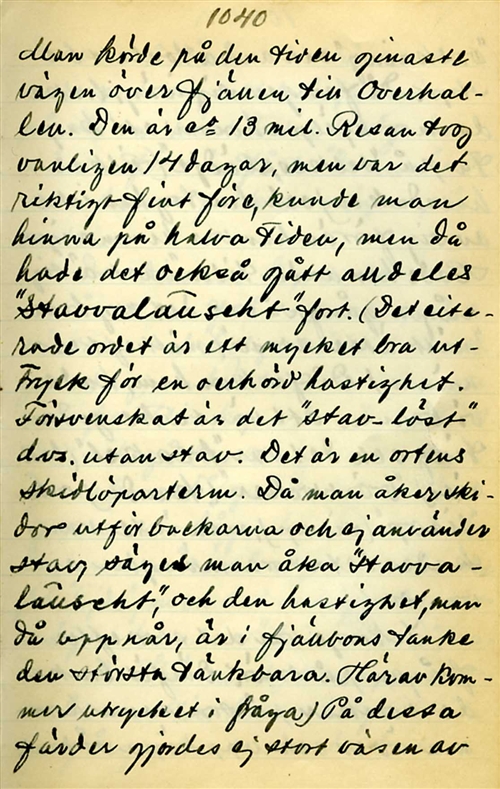 1040
Man körde på den tiden ginaste
vägen över fjällen till Overhal-
len. Den är ca 13 mil. Resan tog
vanligen 14 dagar, men var det
riktigt fint före, kunde man
hinna på halva tiden, men då
hade det också gått alldeles
"stavvalauscht" fort. (Det cite-
rade ordet är ett mycket bra ut-
tryck för en oerhörd hastighet.
Försvenskat är det "stav-löst"
dvs. utan stav. Det är en ortens
skidlöparterm. Då man åker ski-
dor utför backarna och ej använder
stav, säges man åka "stavva-
lauscht", och den hastighet, man
då uppnår, är i fjällbons tanke
den största tänkbara. Härav kom-
mer utrycket i fråga) På dessa
färder gjordes ej stort väsen av